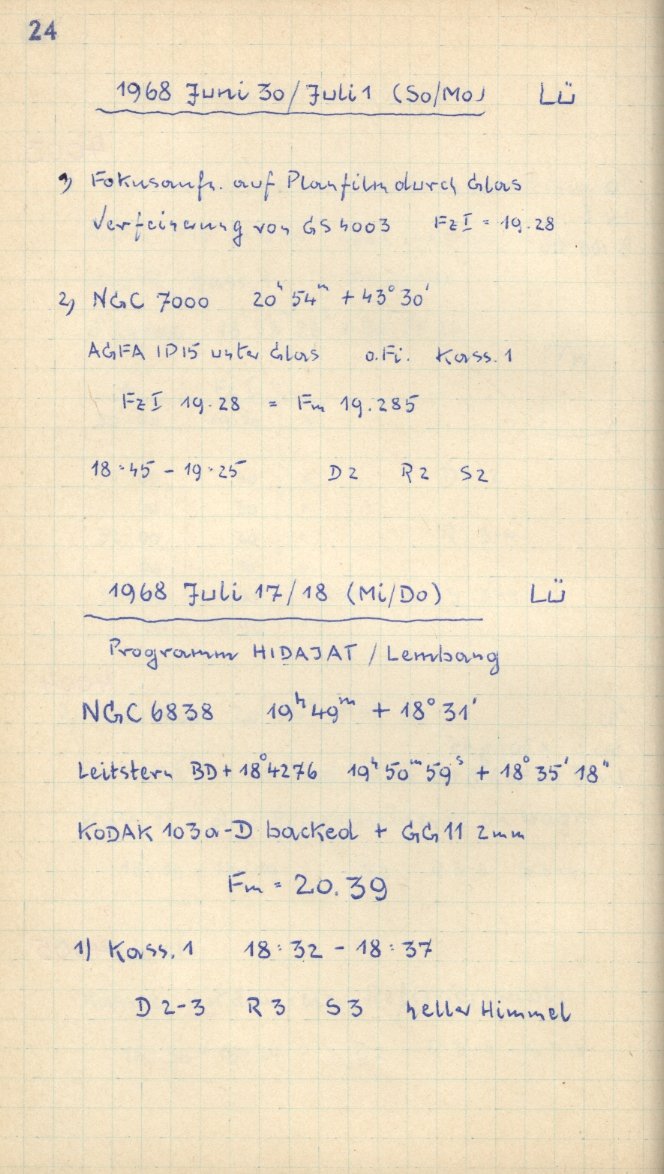 24
1968 Juni 30/Juli 1 (So/Mo) Lü
1) Fokusaufn. auf Planfilm durch Glas
Verfeinerung von GS 4003 FzI = 19.28
2) NGC 7000 20ʰ 54ᵐ + 43° 30'
AGFA IP15 unter Glas o.Fi. Kass. 1
FzI 19.28 = Fm 19.285
18:45 - 19:25 D2 R2 S2
1968 Juli 17/18 (Mi/Do) Lü
Programm HIDAJAT / Lembang
NGC 6838 19ʰ 49ᵐ + 18° 31'
Leitstern BD + 18°4276 19ʰ 50ᵐ 59ˢ + 18° 35' 18"
KODAK 103a-D backed + GG11 2mm
Fm = 20.39
1) Kass. 1 18:32 - 18:37
D 2-3 R3 S3 heller Himmel